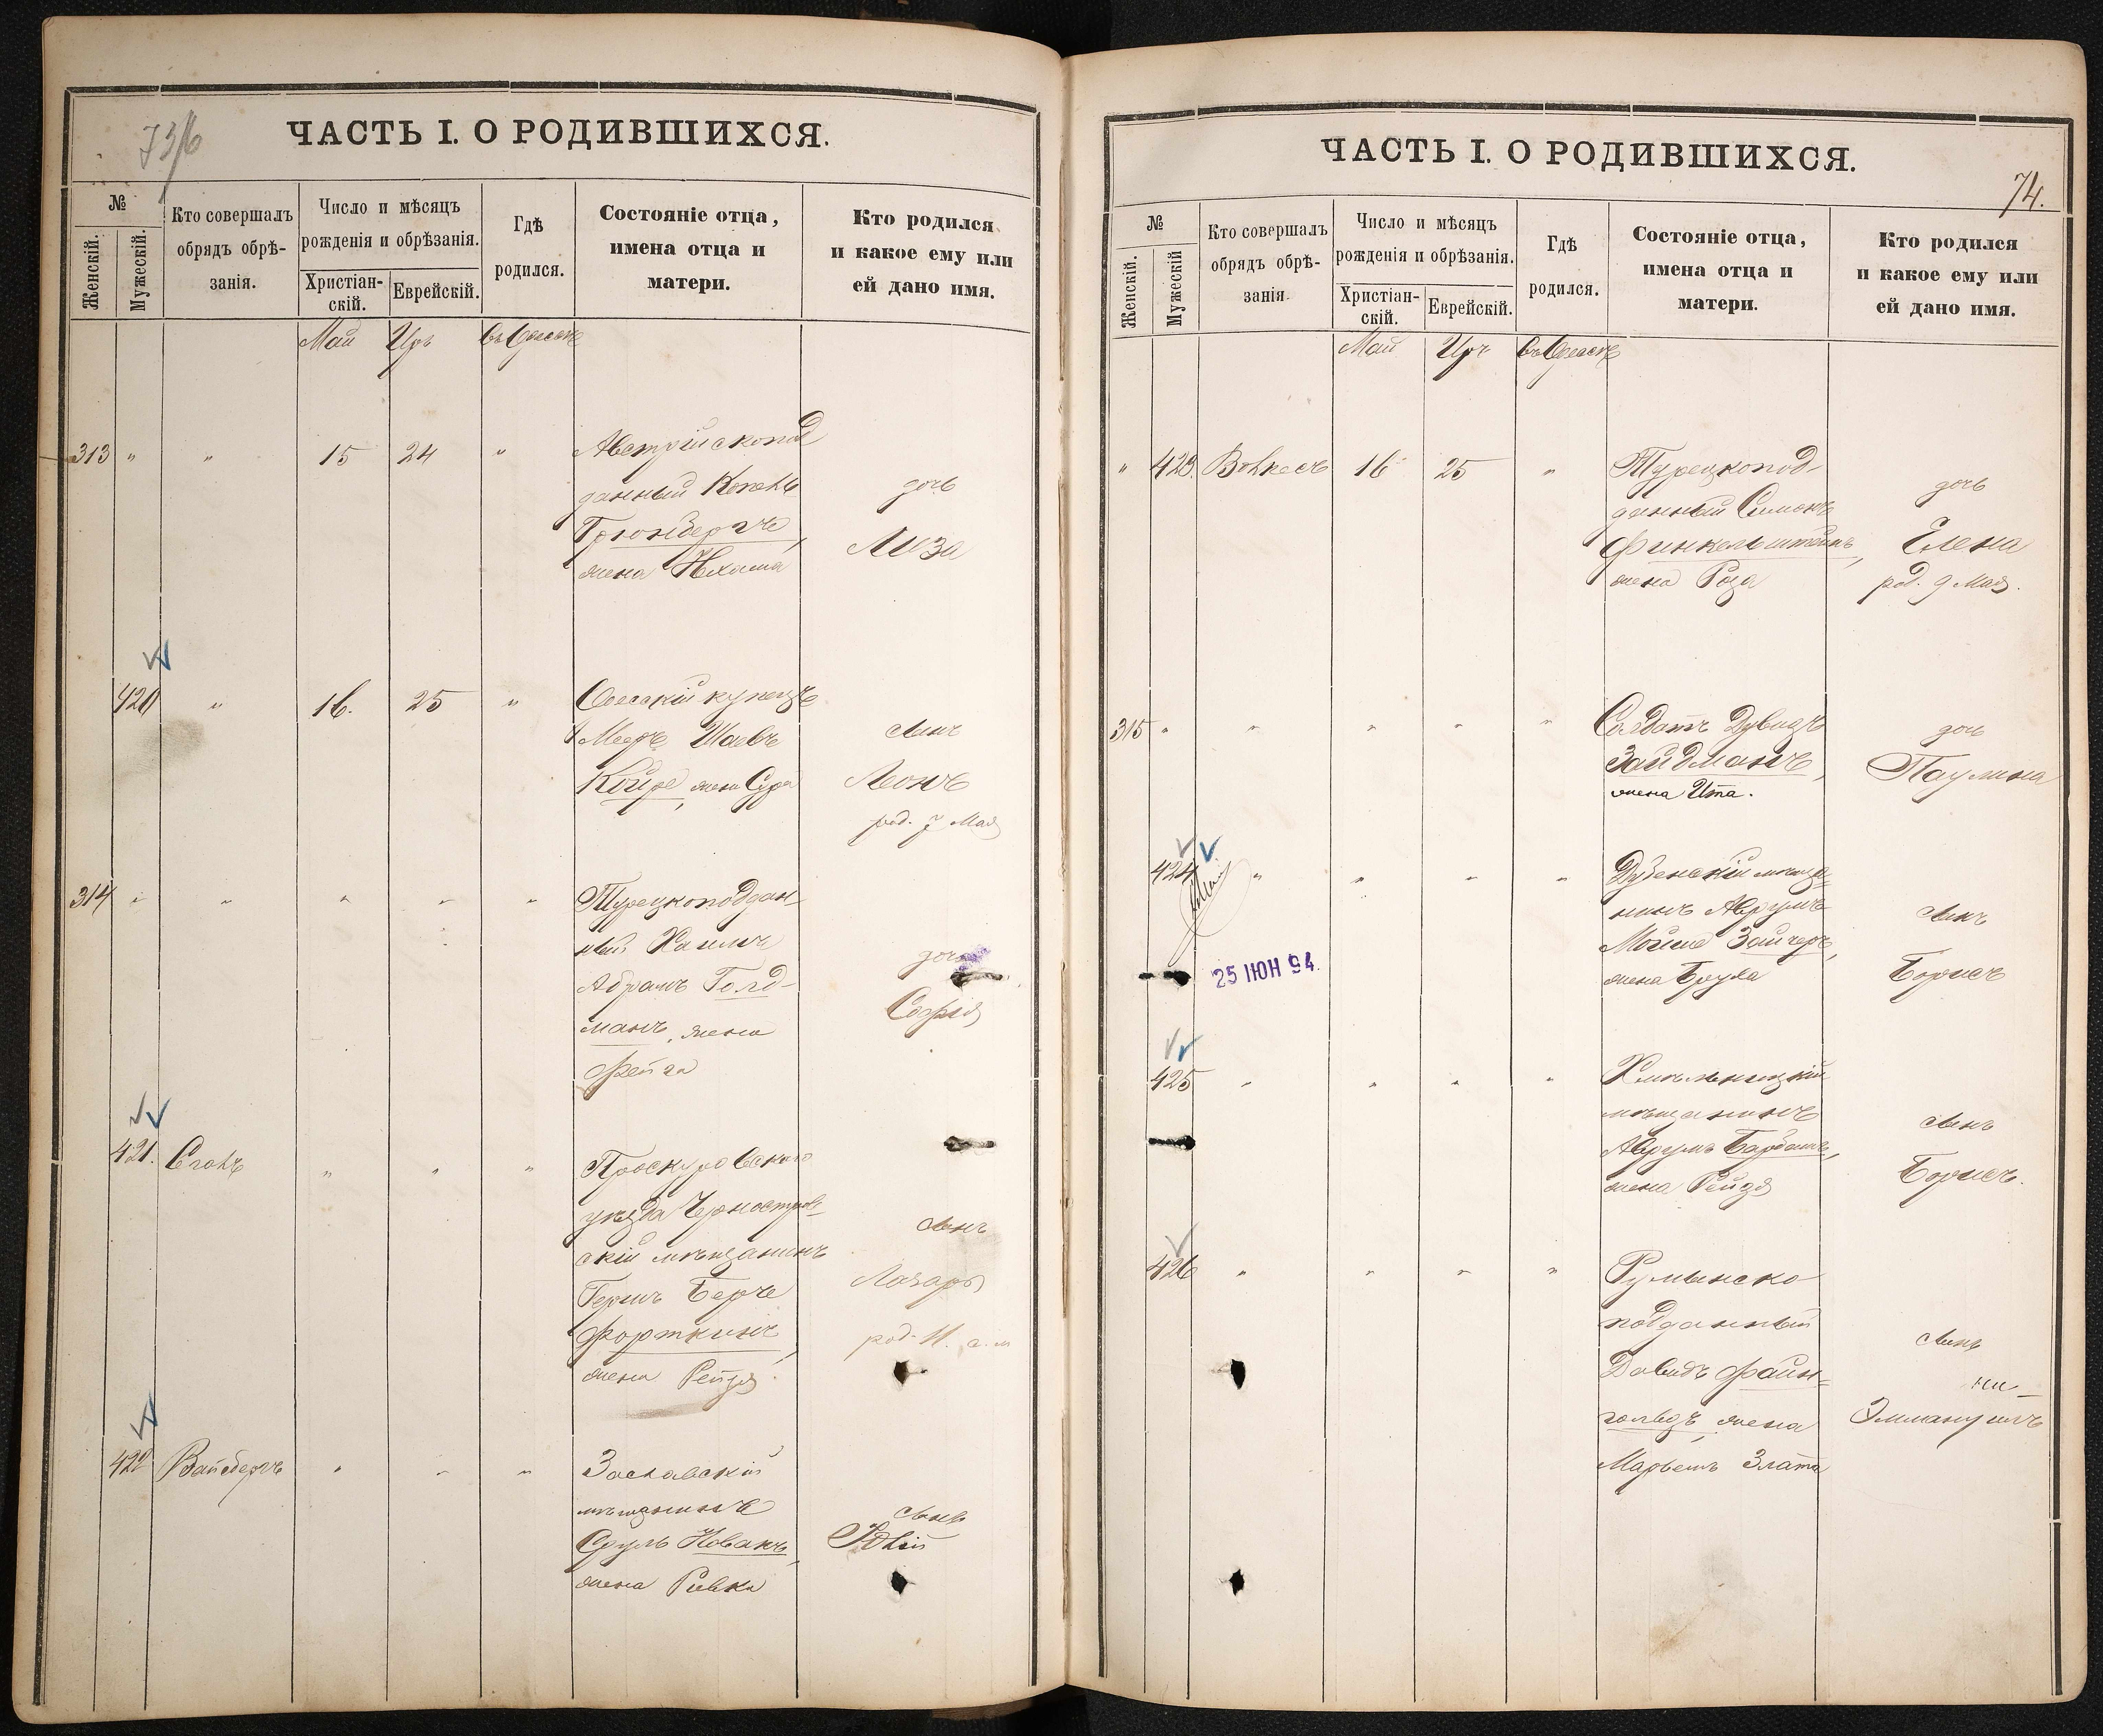 73/б
ЧАСТЬ I. О РОДИВШИХСЯ.
№
Женскій.
Мужескій.
Кто совершалъ
обрядъ обрѣ-
занія.
Число и мѣсяцъ
рожденія и обрѣзанія.
Христіан-
скій.
Еврейскій.
Гдѣ
родился.
Состояніе отца,
имена отца и
матери.
Кто родился
и какое ему или
ей дано имя.
Май Иръ Въ Одессѣ
313 " " 15 24 " Австрійскопод
данный
Грюнбергъ,
жена
дочь
Лиза
420 " 16. 25 " Одесскій купецъ
Мееръ Шаевъ
Койре, жена Сура
сынъ
Леонъ
род. 7 Мая
314 " " " " " Турецкоподдан-
ный Хаимъ
Абрамъ Голд-
манъ, жена
Фейга
дочь
Софія
421. " " " Проскуровскаго
уѣзда Черноостров-
скій мѣщанинъ
Гершъ Берче
Форткинъ,
жена Рейзя
сынъ
Лазарь
род. 11. с. м
422 Вайсбергъ " " " Заславскій
мѣщанинъ
Сруль Новакъ,
жена Ривка
сынъ
ЧАСТЬ I. О РОДИВШИХСЯ.
74.
№
Женскій.
Мужескій
Кто совершалъ
обрядъ обрѣ-
занія.
Число и мѣсяцъ
рожденія и обрѣзанія.
Христіан-
скій.
Еврейскій.
Гдѣ
родился.
Состояніе отца,
имена отца и
матери.
Кто родился
и какое ему или
ей дано имя.
Май Иръ Въ Одессѣ
" 423. 16 25 " Турецкопод-
данный Симонъ
Финкельштейнъ,
жена Роза
дочь
Елена
род. 9 Мая.
315 " " " " " Солдатъ Дувидъ
Зайдманъ,
жена Ита.
дочь
Паулина
424 " " " " Дубенскій мѣща-
нинъ Аврумъ
Мойше Зайчеръ,
жена Бруха
сынъ
Борисъ
25 ІЮН 94
425 " " " " Хмѣльницкій
мѣщанинъ
Аврумъ Барбанъ,
жена Рейзя
сынъ
Борисъ.
426 " " " " Румынско
подданный
Давидъ Файн-
гольдъ, жена
Марьемъ Злата
сынъ
Эммануилъ